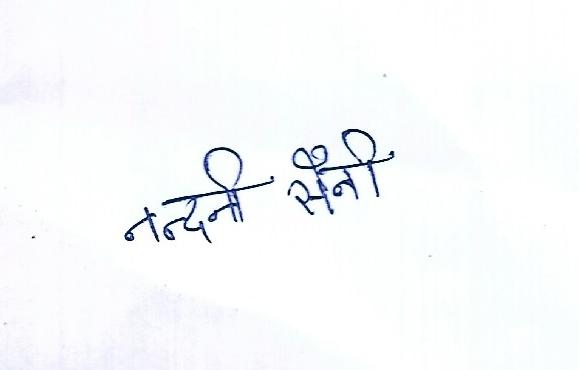 नन्दनी सैनी